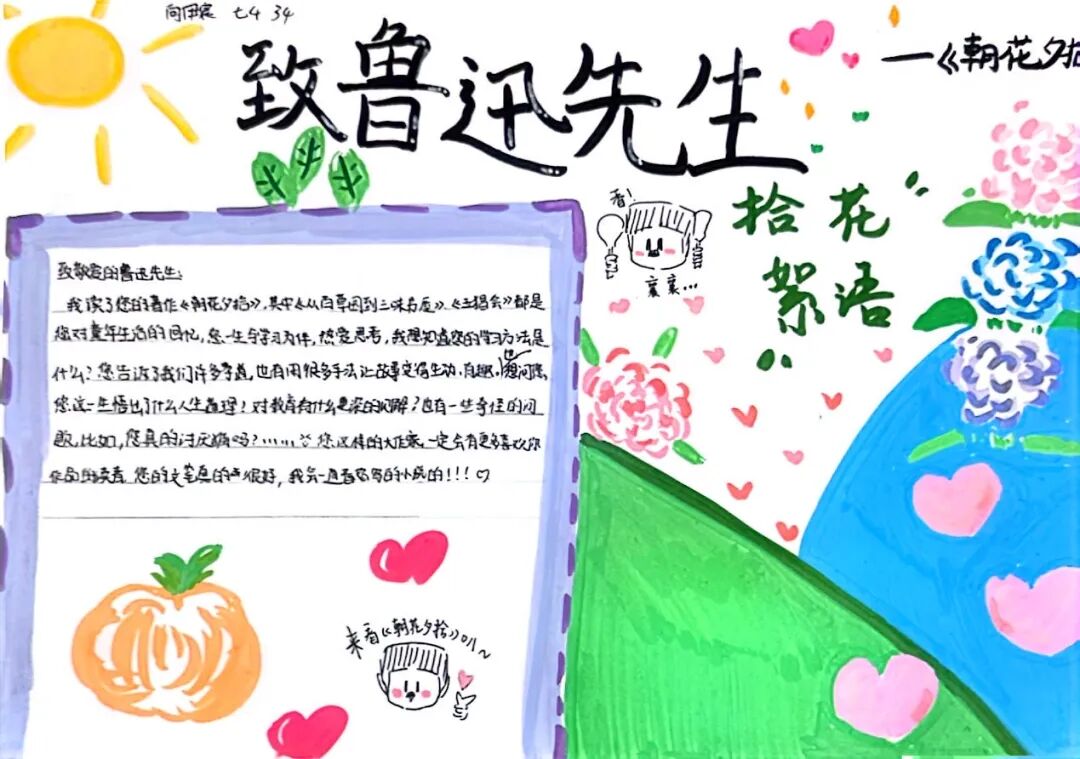 向伊宸 七4 34
致鲁迅先生
——《朝花夕拾
拾花
絮语
看!
哀哀…
致敬爱的鲁迅先生:
我读了您的著作《朝花夕拾》,其中《从百草园到三味书屋》、《五猖会》都是
您对童年生活的回忆,您一生与学习为伴,热爱思考,我想知道您的学习方法是
什么?您告诉了我们许多孝道,也有用很多手法让故事变得生动,有趣,想问您,
您这一生悟出了什么人生道理?对教育有什么更深的见解?也有一些奇怪的问
题,比如,您真的讨厌猫吗?……您这样的大作家,一定会有更多喜欢你
作品的读者,您的文笔真的也很好,我会一直看您写的小说的!!!♡
来看《朝花夕拾》叭~